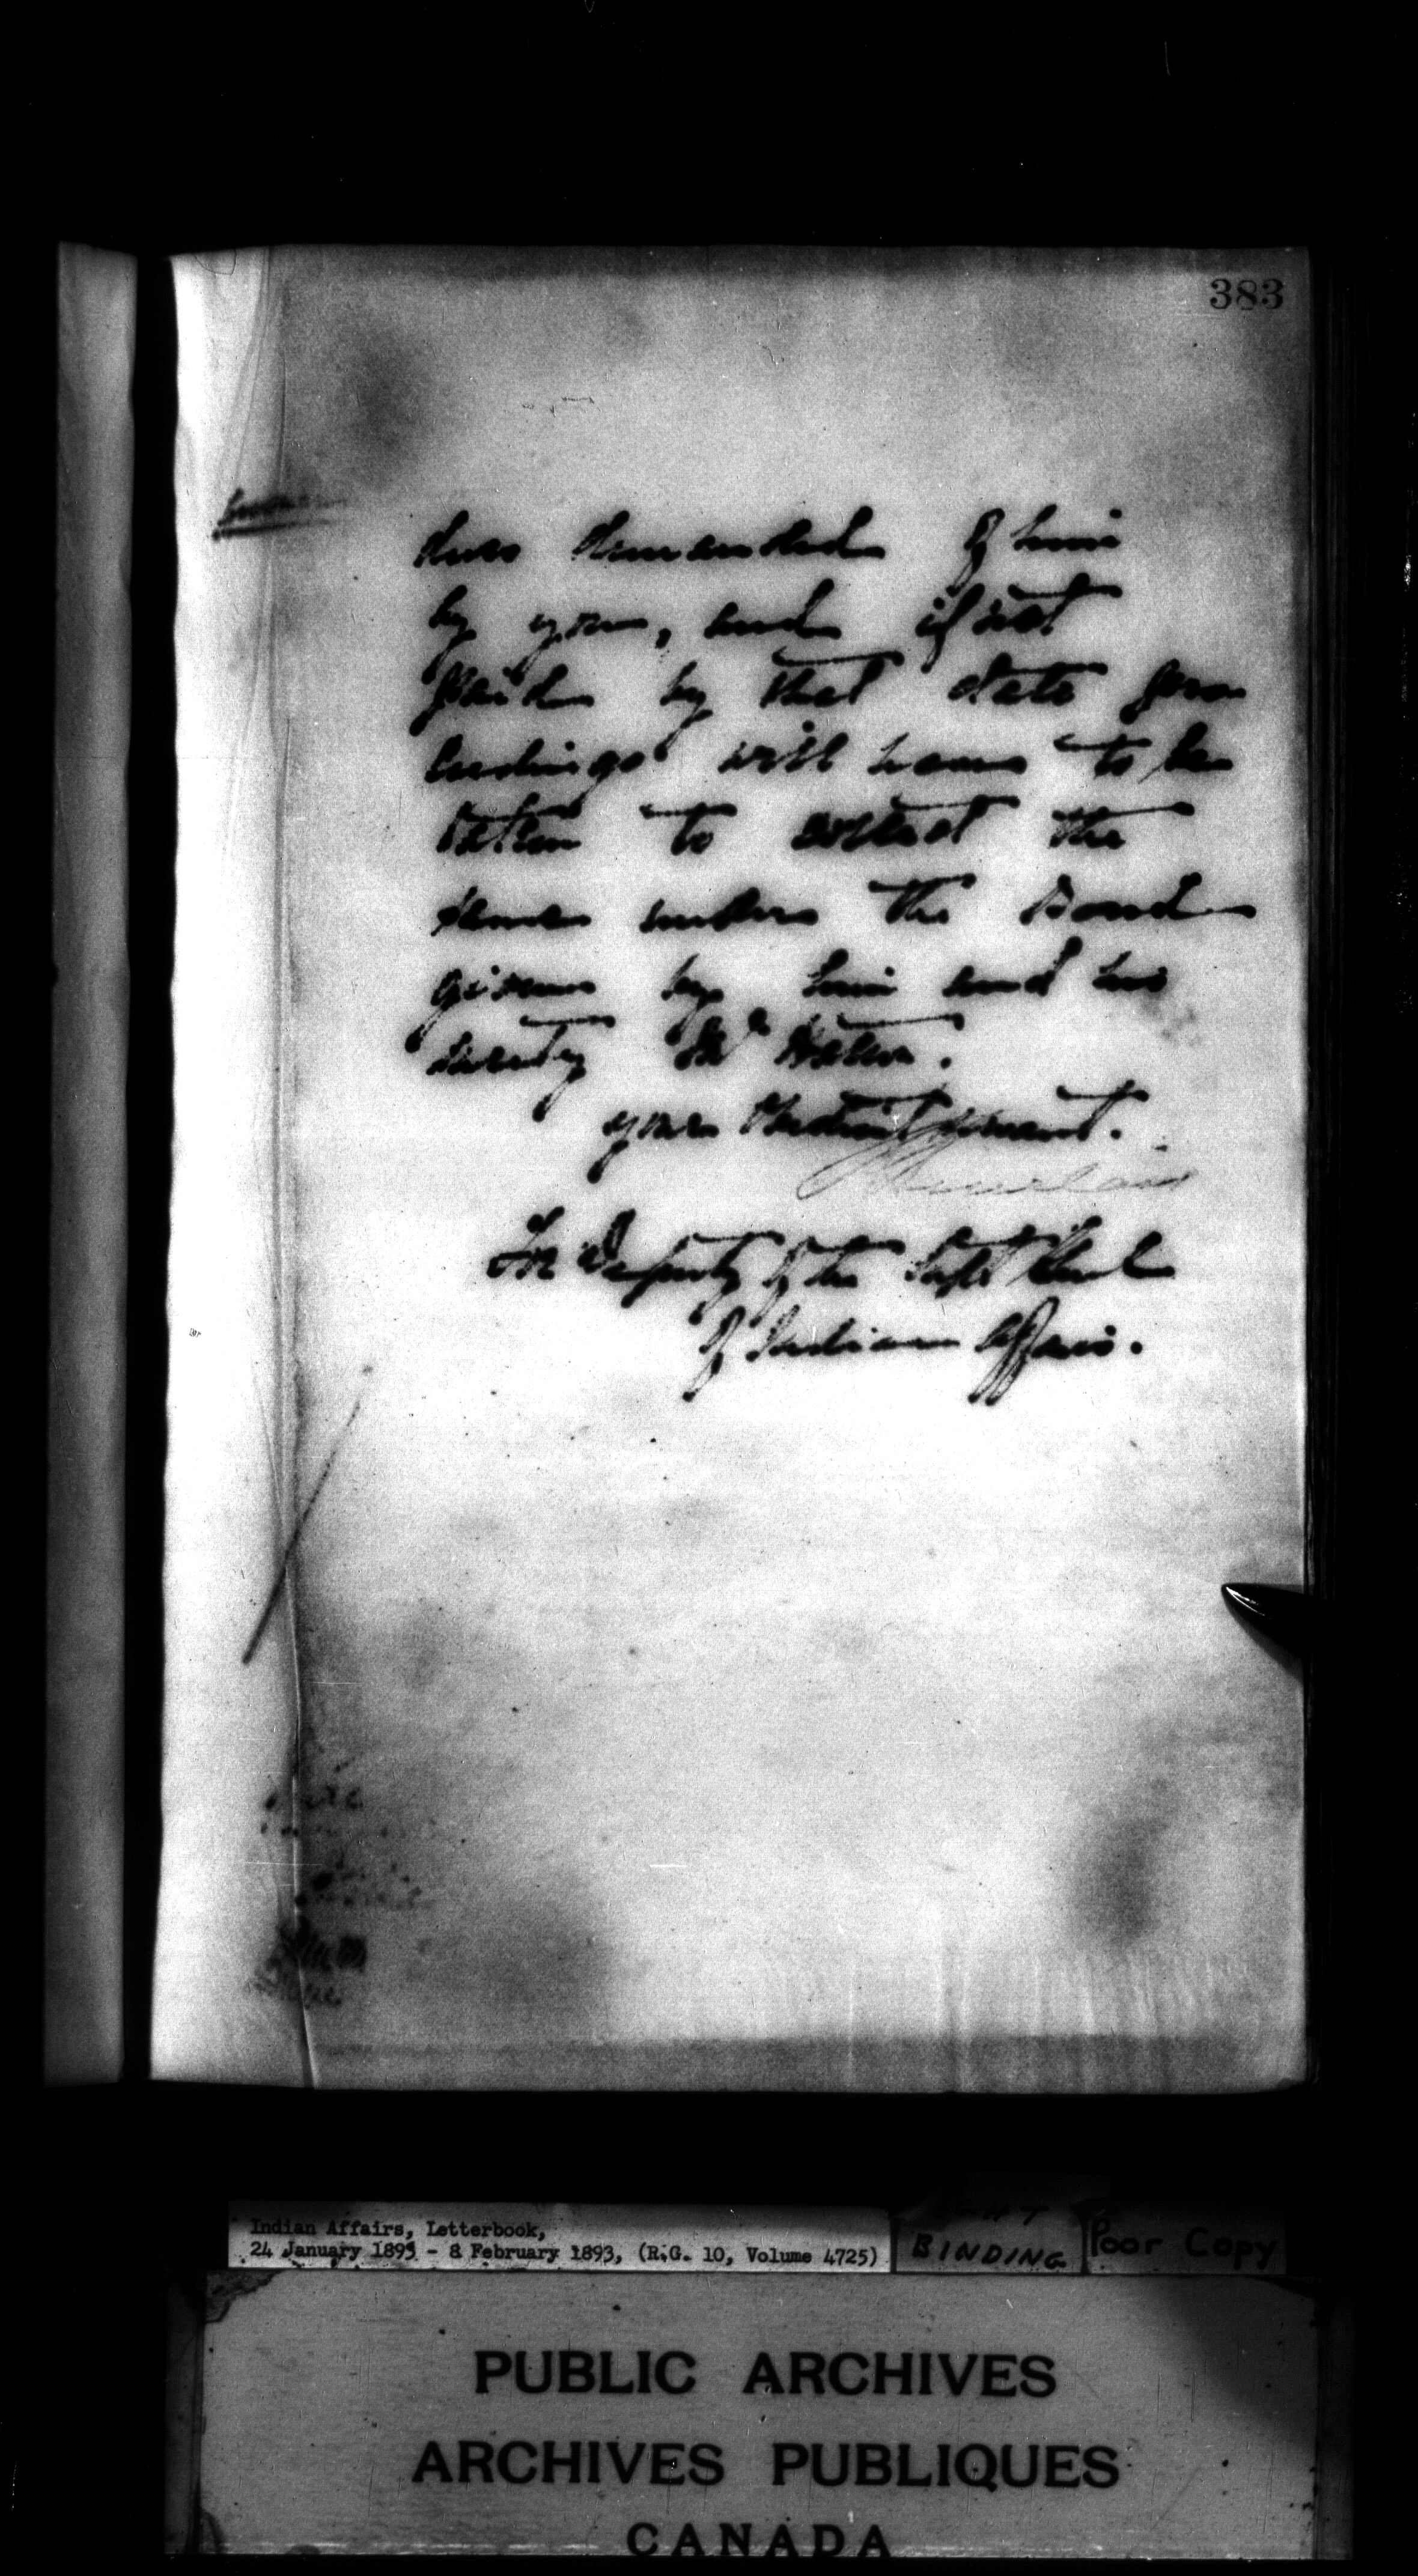 383
dues demanded of him
by you, and if not
paid by that date pro
ceedings will have to be
taken to collect the
same under the Bond
given by him and his
surety Mr
your obedient servant.
For Deputy of the Supt Genl
of Indian Affairs.
Indian Affairs, Letterbook,
24 January 1893 - 8 February 1893, (R.G. 10, Volume 4725)
BINDING
Poor Copy
PUBLIC ARCHIVES
ARCHIVES PUBLIQUES
CANADA